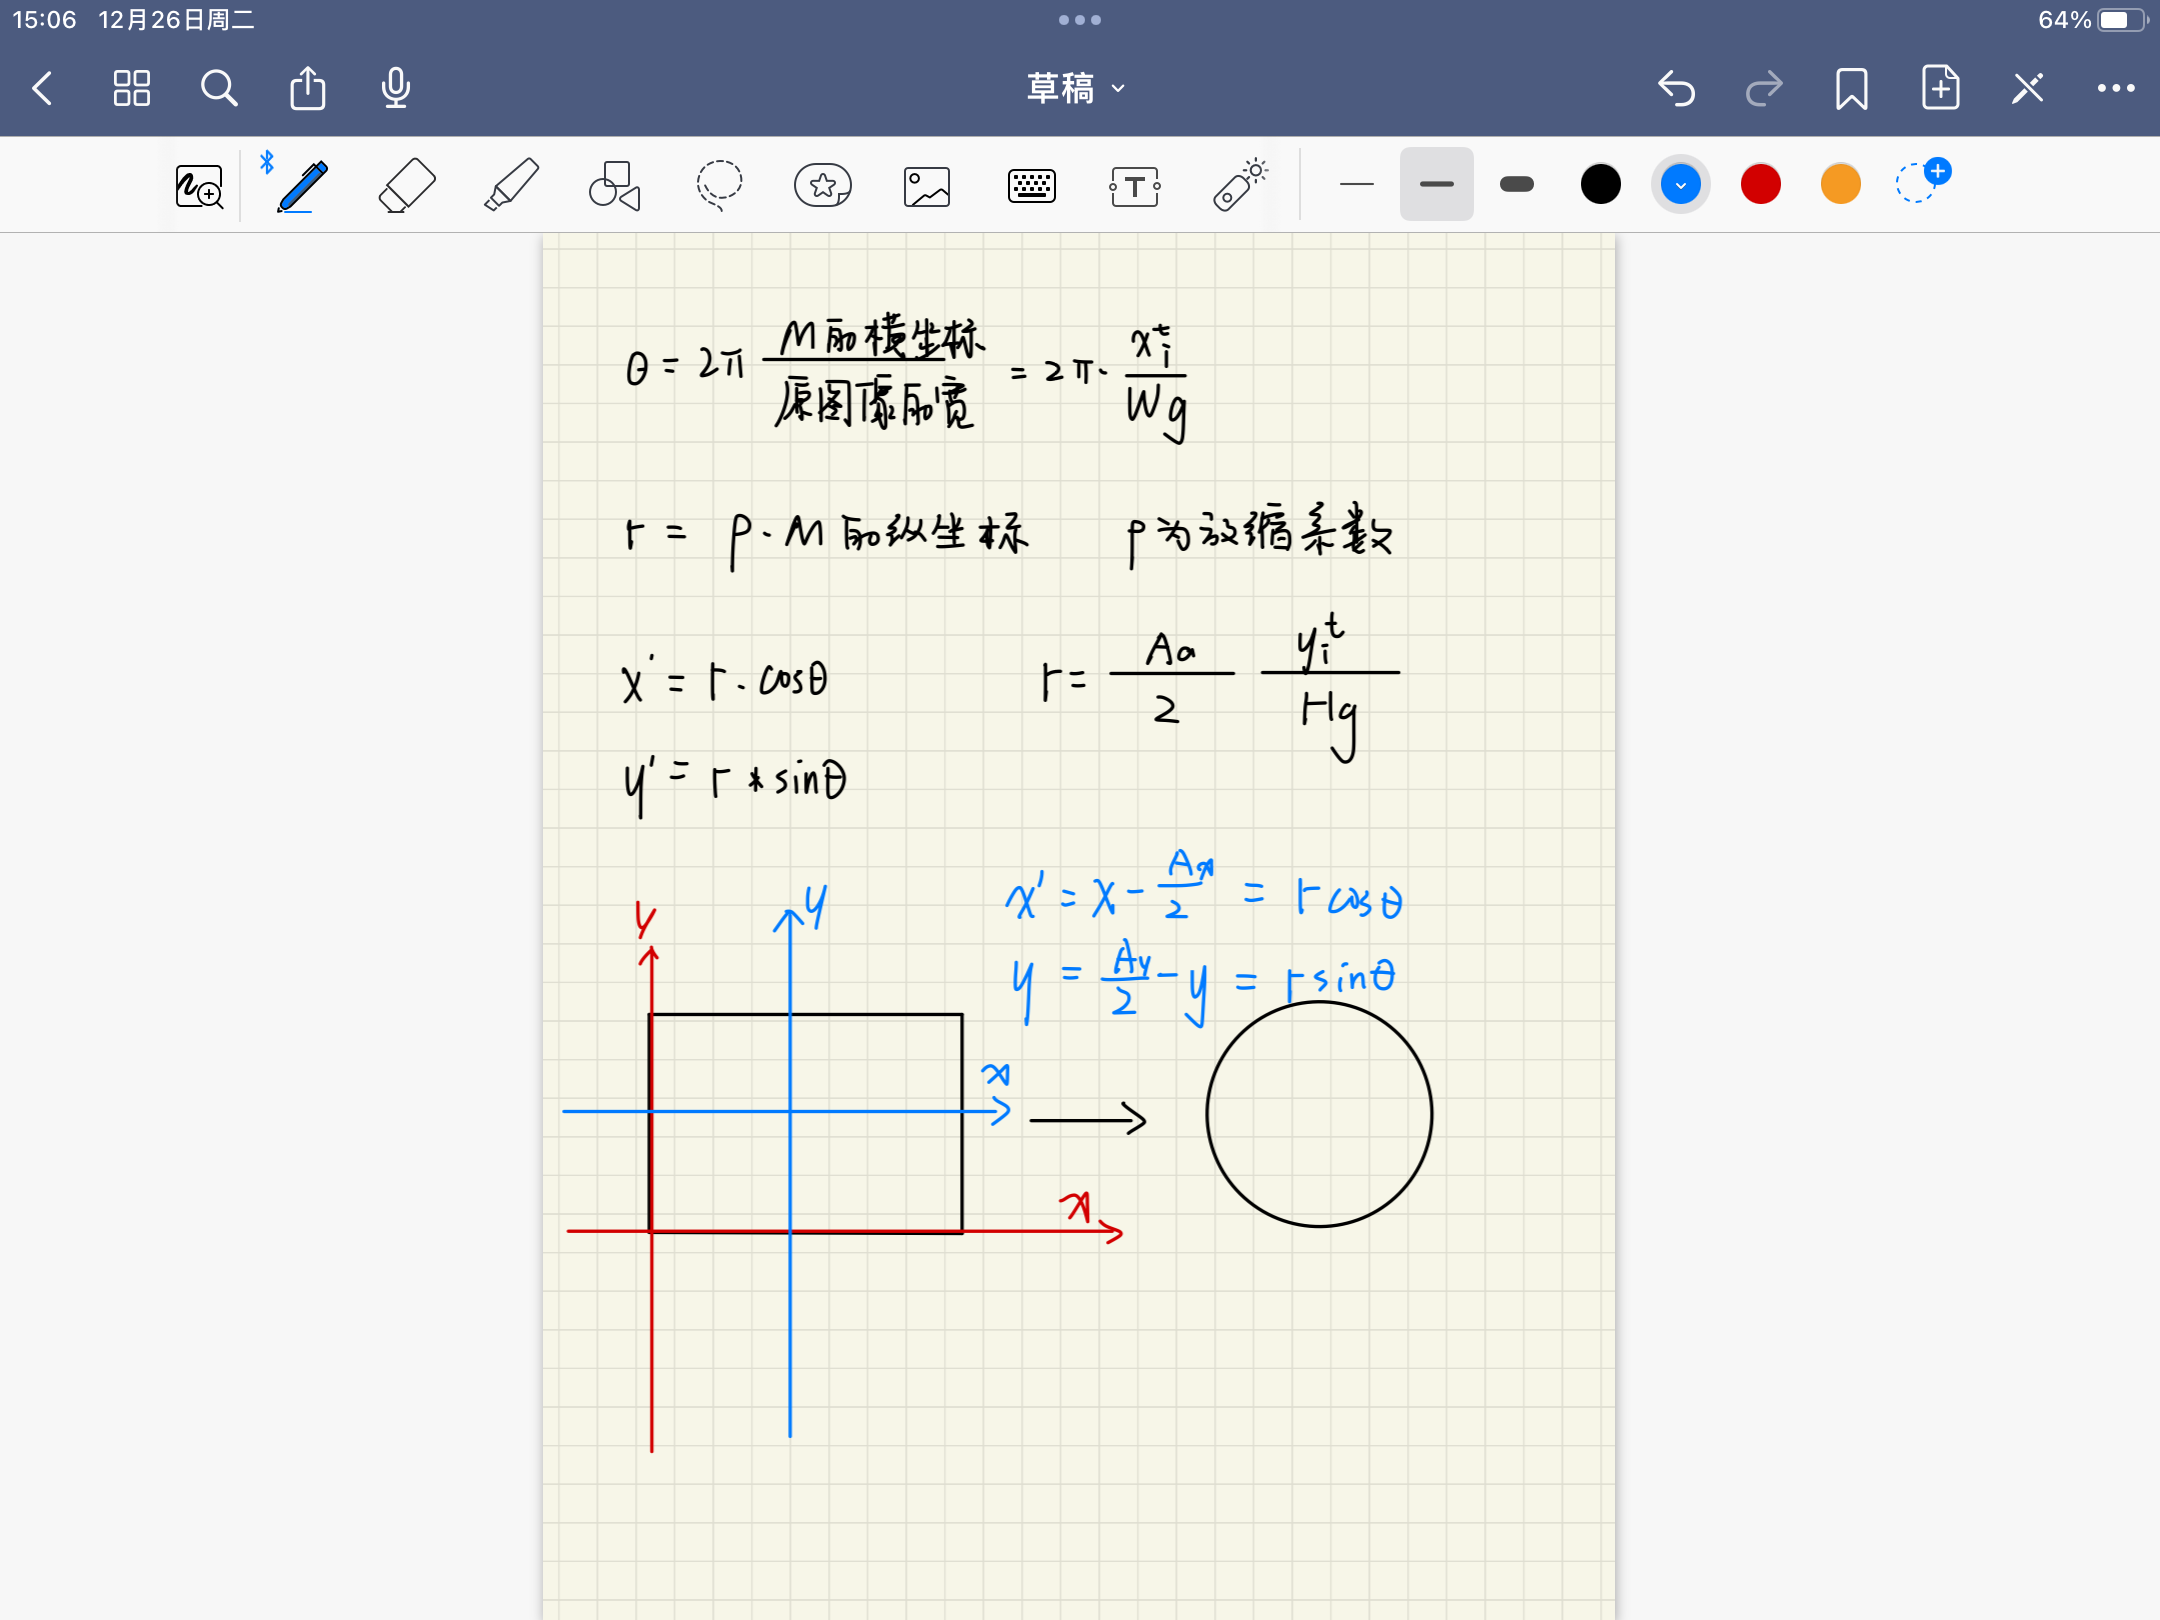 15:06 12月26日周二
64%
草稿
T
θ = 2π M的横坐标/原图像的宽 = 2π · xᵢᵗ/Wg
r = p · M的纵坐标 p为放缩系数
x' = r · cosθ r = Aa/2 yᵢᵗ/Hg
y' = r * sinθ
x' = x - Ax/2 = r cosθ
y = Ay/2 - y = r sinθ
y
y
x
x